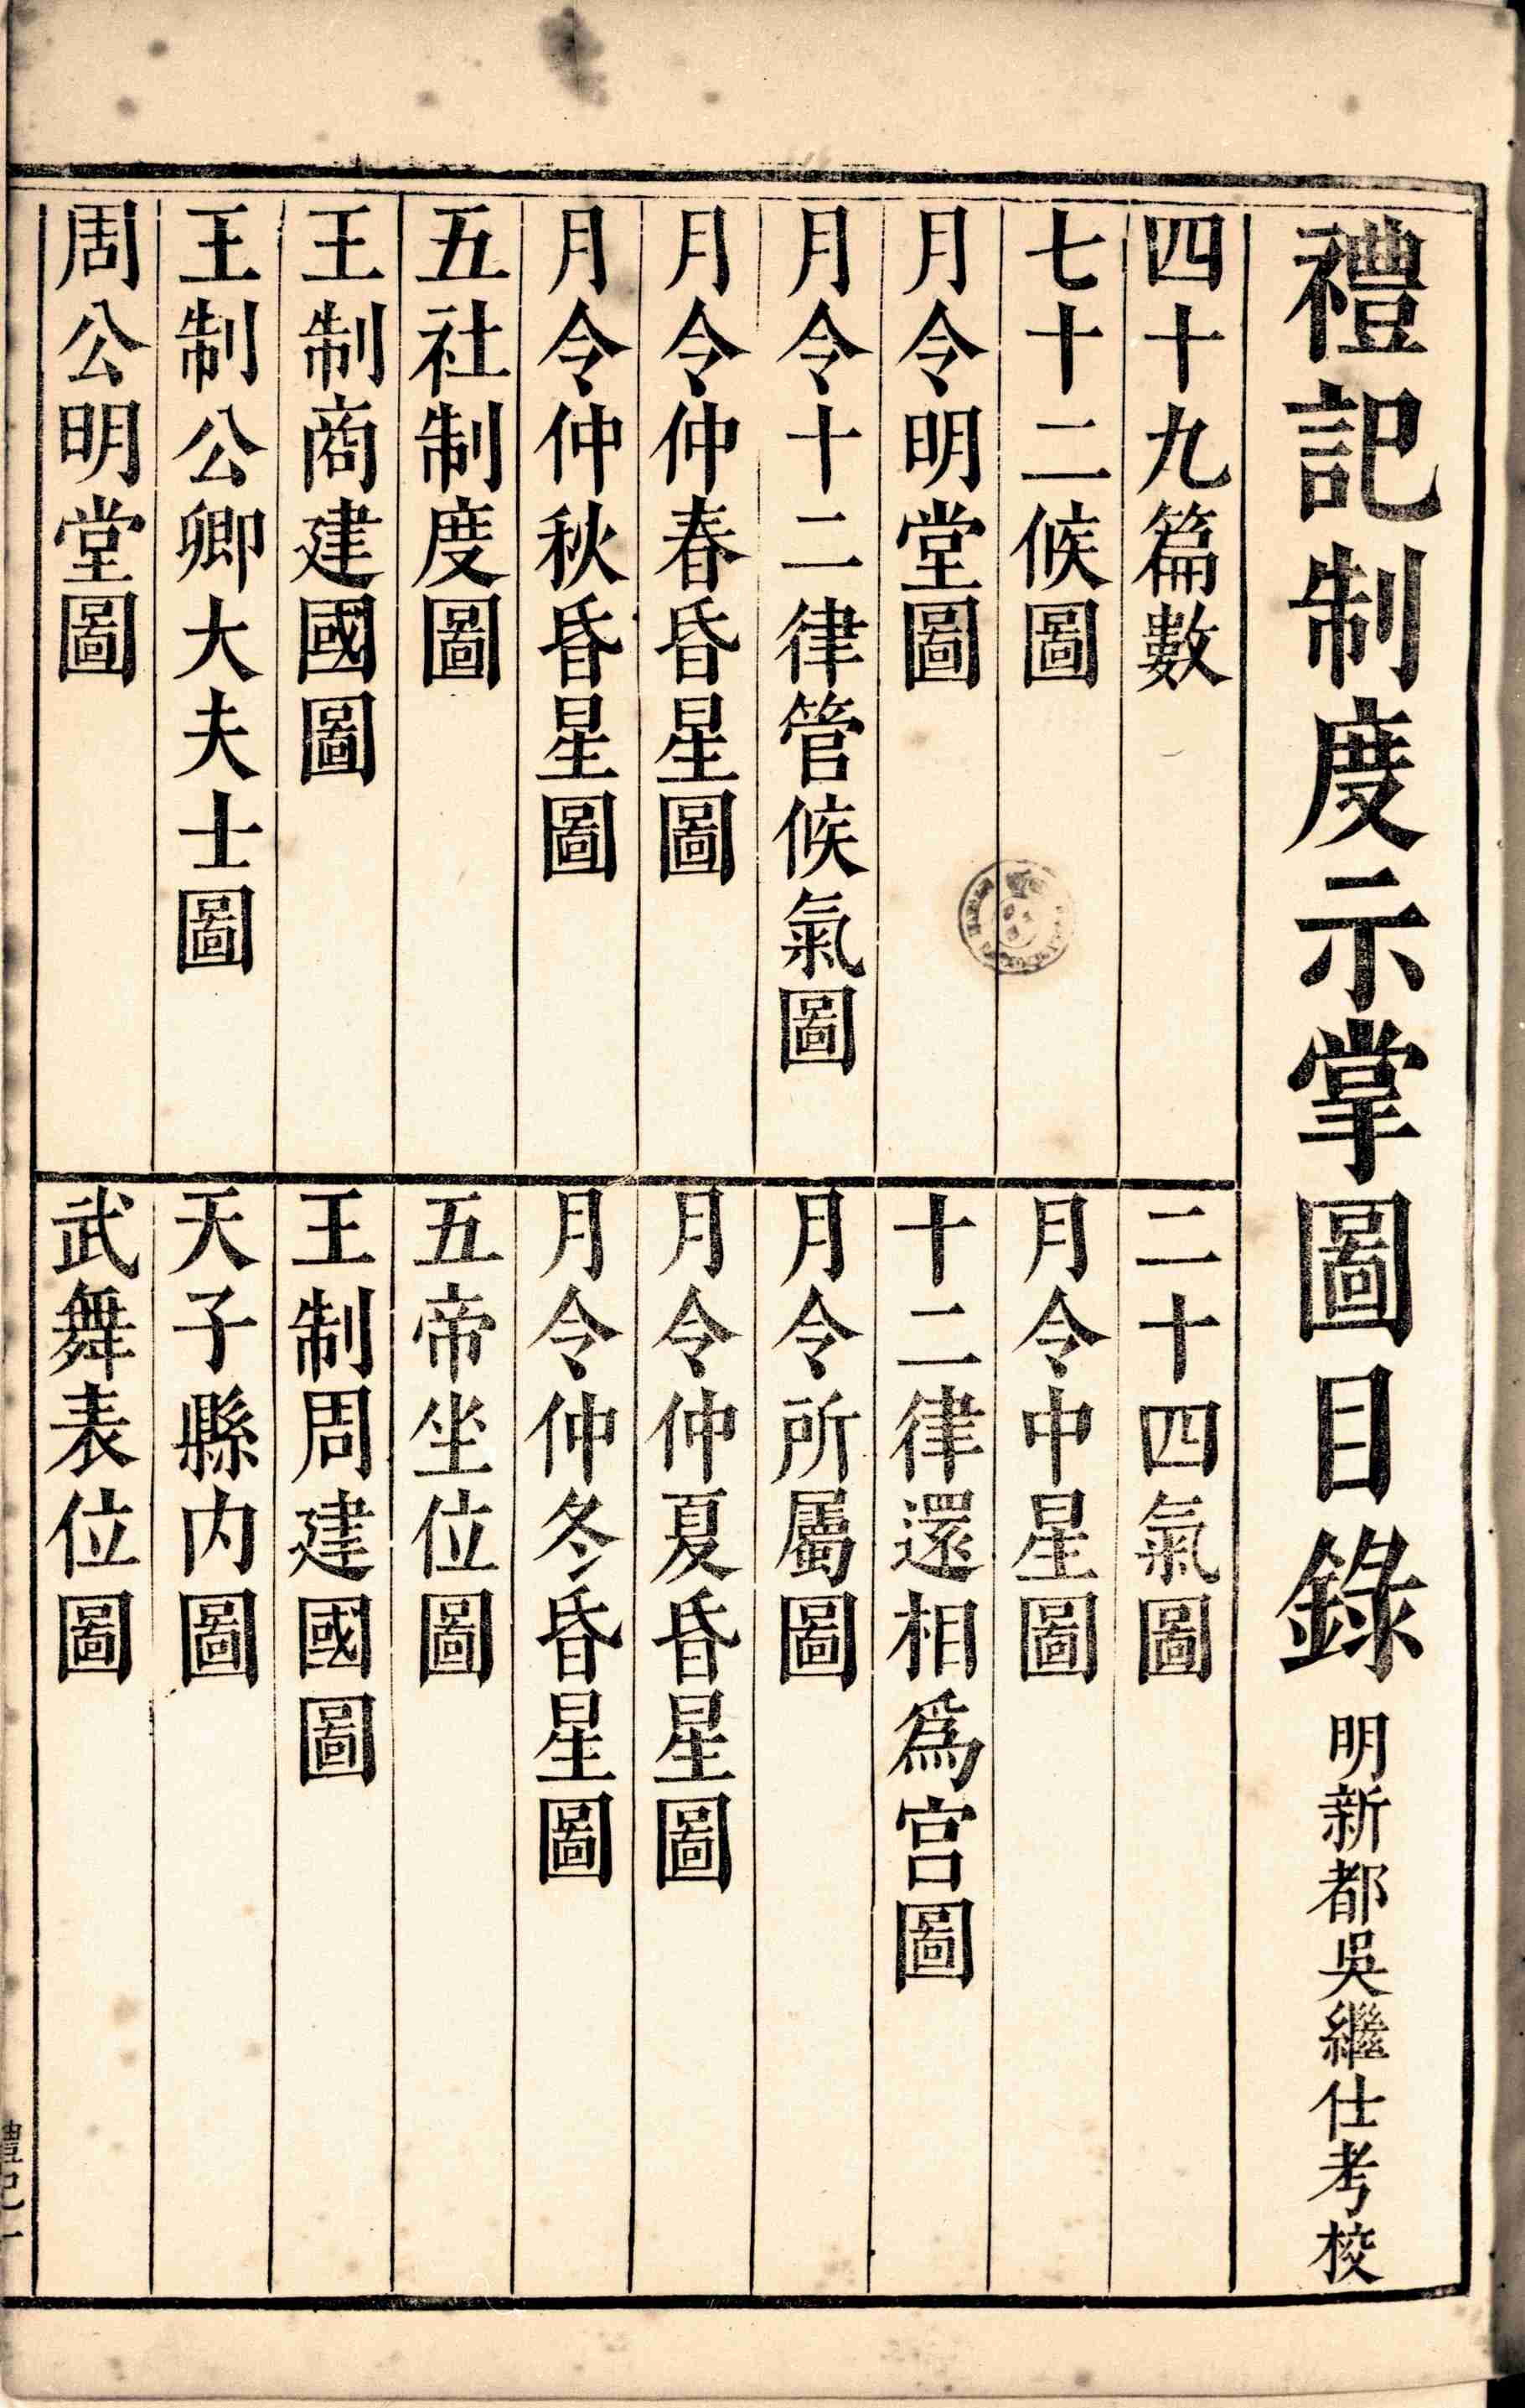 禮記制度示掌圖目錄 明新都吳繼仕考校
四十九篇數
二十四氣圖
七十二候圖
月令中星圖
月令明堂圖
十二律還相爲宮圖
月令十二律管候氣圖
月令所屬圖
月令仲春昏星圖
月令仲夏昏星圖
月令仲秋昏星圖
月令仲冬昏星圖
五社制度圖
五帝坐位圖
王制商建國圖
王制周建國圖
王制公卿大夫士圖
天子縣内圖
周公明堂圖
武舞表位圖
禮記一